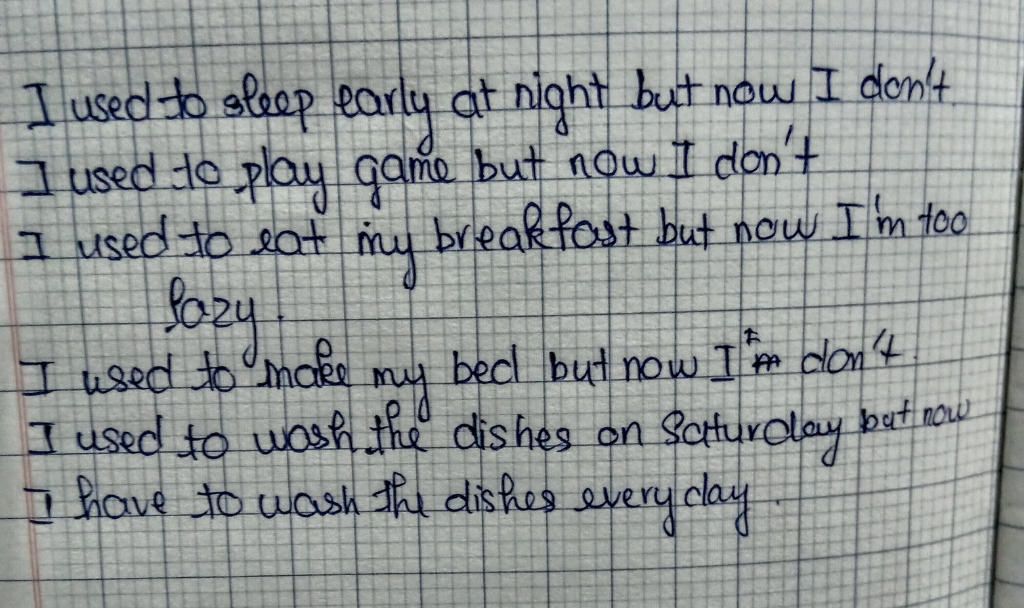 I used to sleep early at night but now I don't
I used to play game but now I don't
I used to eat my breakfast but now I'm too
lazy.
I used to make my bed but now I don't.
I used to wash the dishes on Saturday but now
I have to wash the dishes every day.